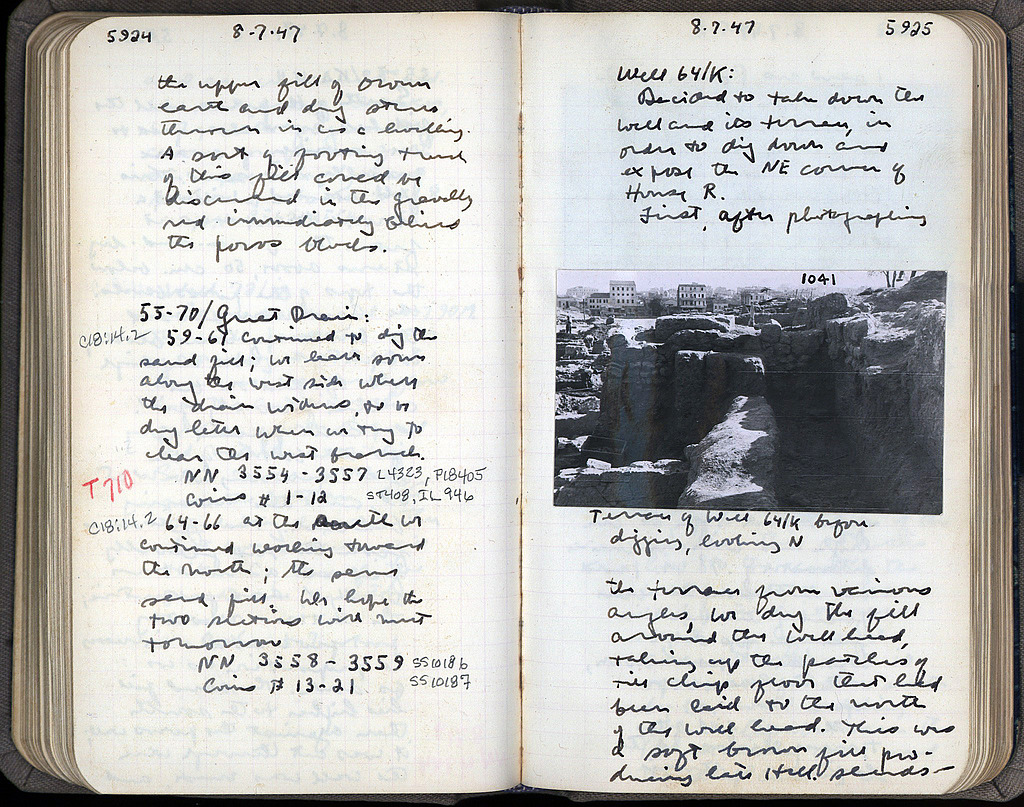 5924
8-7-47
the upper fill of brown
earth and dry stones
thrown in as a levelling.
A sort of footing trench
of this fill could be
discerned in the gravelly
red immediately behind
the poros blocks.
55-70/Great Drain:
C18:14.2
59-61 continued to dig the
sand fill; we leave some
along the west side where
the drain widens, to be
dug later when we try to
clear the west branch.
NN 3554-3557 L4323, P18405
T710
Coins # 1-12 ST408, IL 946
C18:14.2
64-66 at the south we
continued working toward
the north; the same
sand fill. We hope the
two sections will meet
tomorrow
NN 3558-3559 SS10186
Coins # 13-21 SS10187
8.7.47
5925
Well 64/K:
Decided to take down the
well and its terrace, in
order to dig down and
expose the NE corner of
House R.
First, after photographing
1041
Terrace of Well 64/K before
digging, looking N
the terrace from various
angles, we dug the fill
around the well head,
taking up the patches of
tile chip floor that had
been laid to the north
of the well head. This was
a soft brown fill pro-
ducing late Hell. sherds—